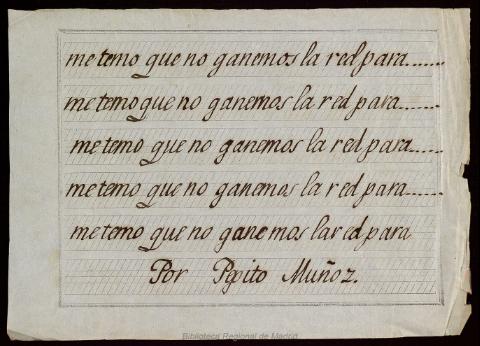 me temo que no ganemos la red para......
me temo que no ganemos la red para......
me temo que no ganemos la red para......
me temo que no ganemos la red para......
me temo que no ganemos la red para
Por Pepito Muñoz.
Biblioteca Regional de Madrid